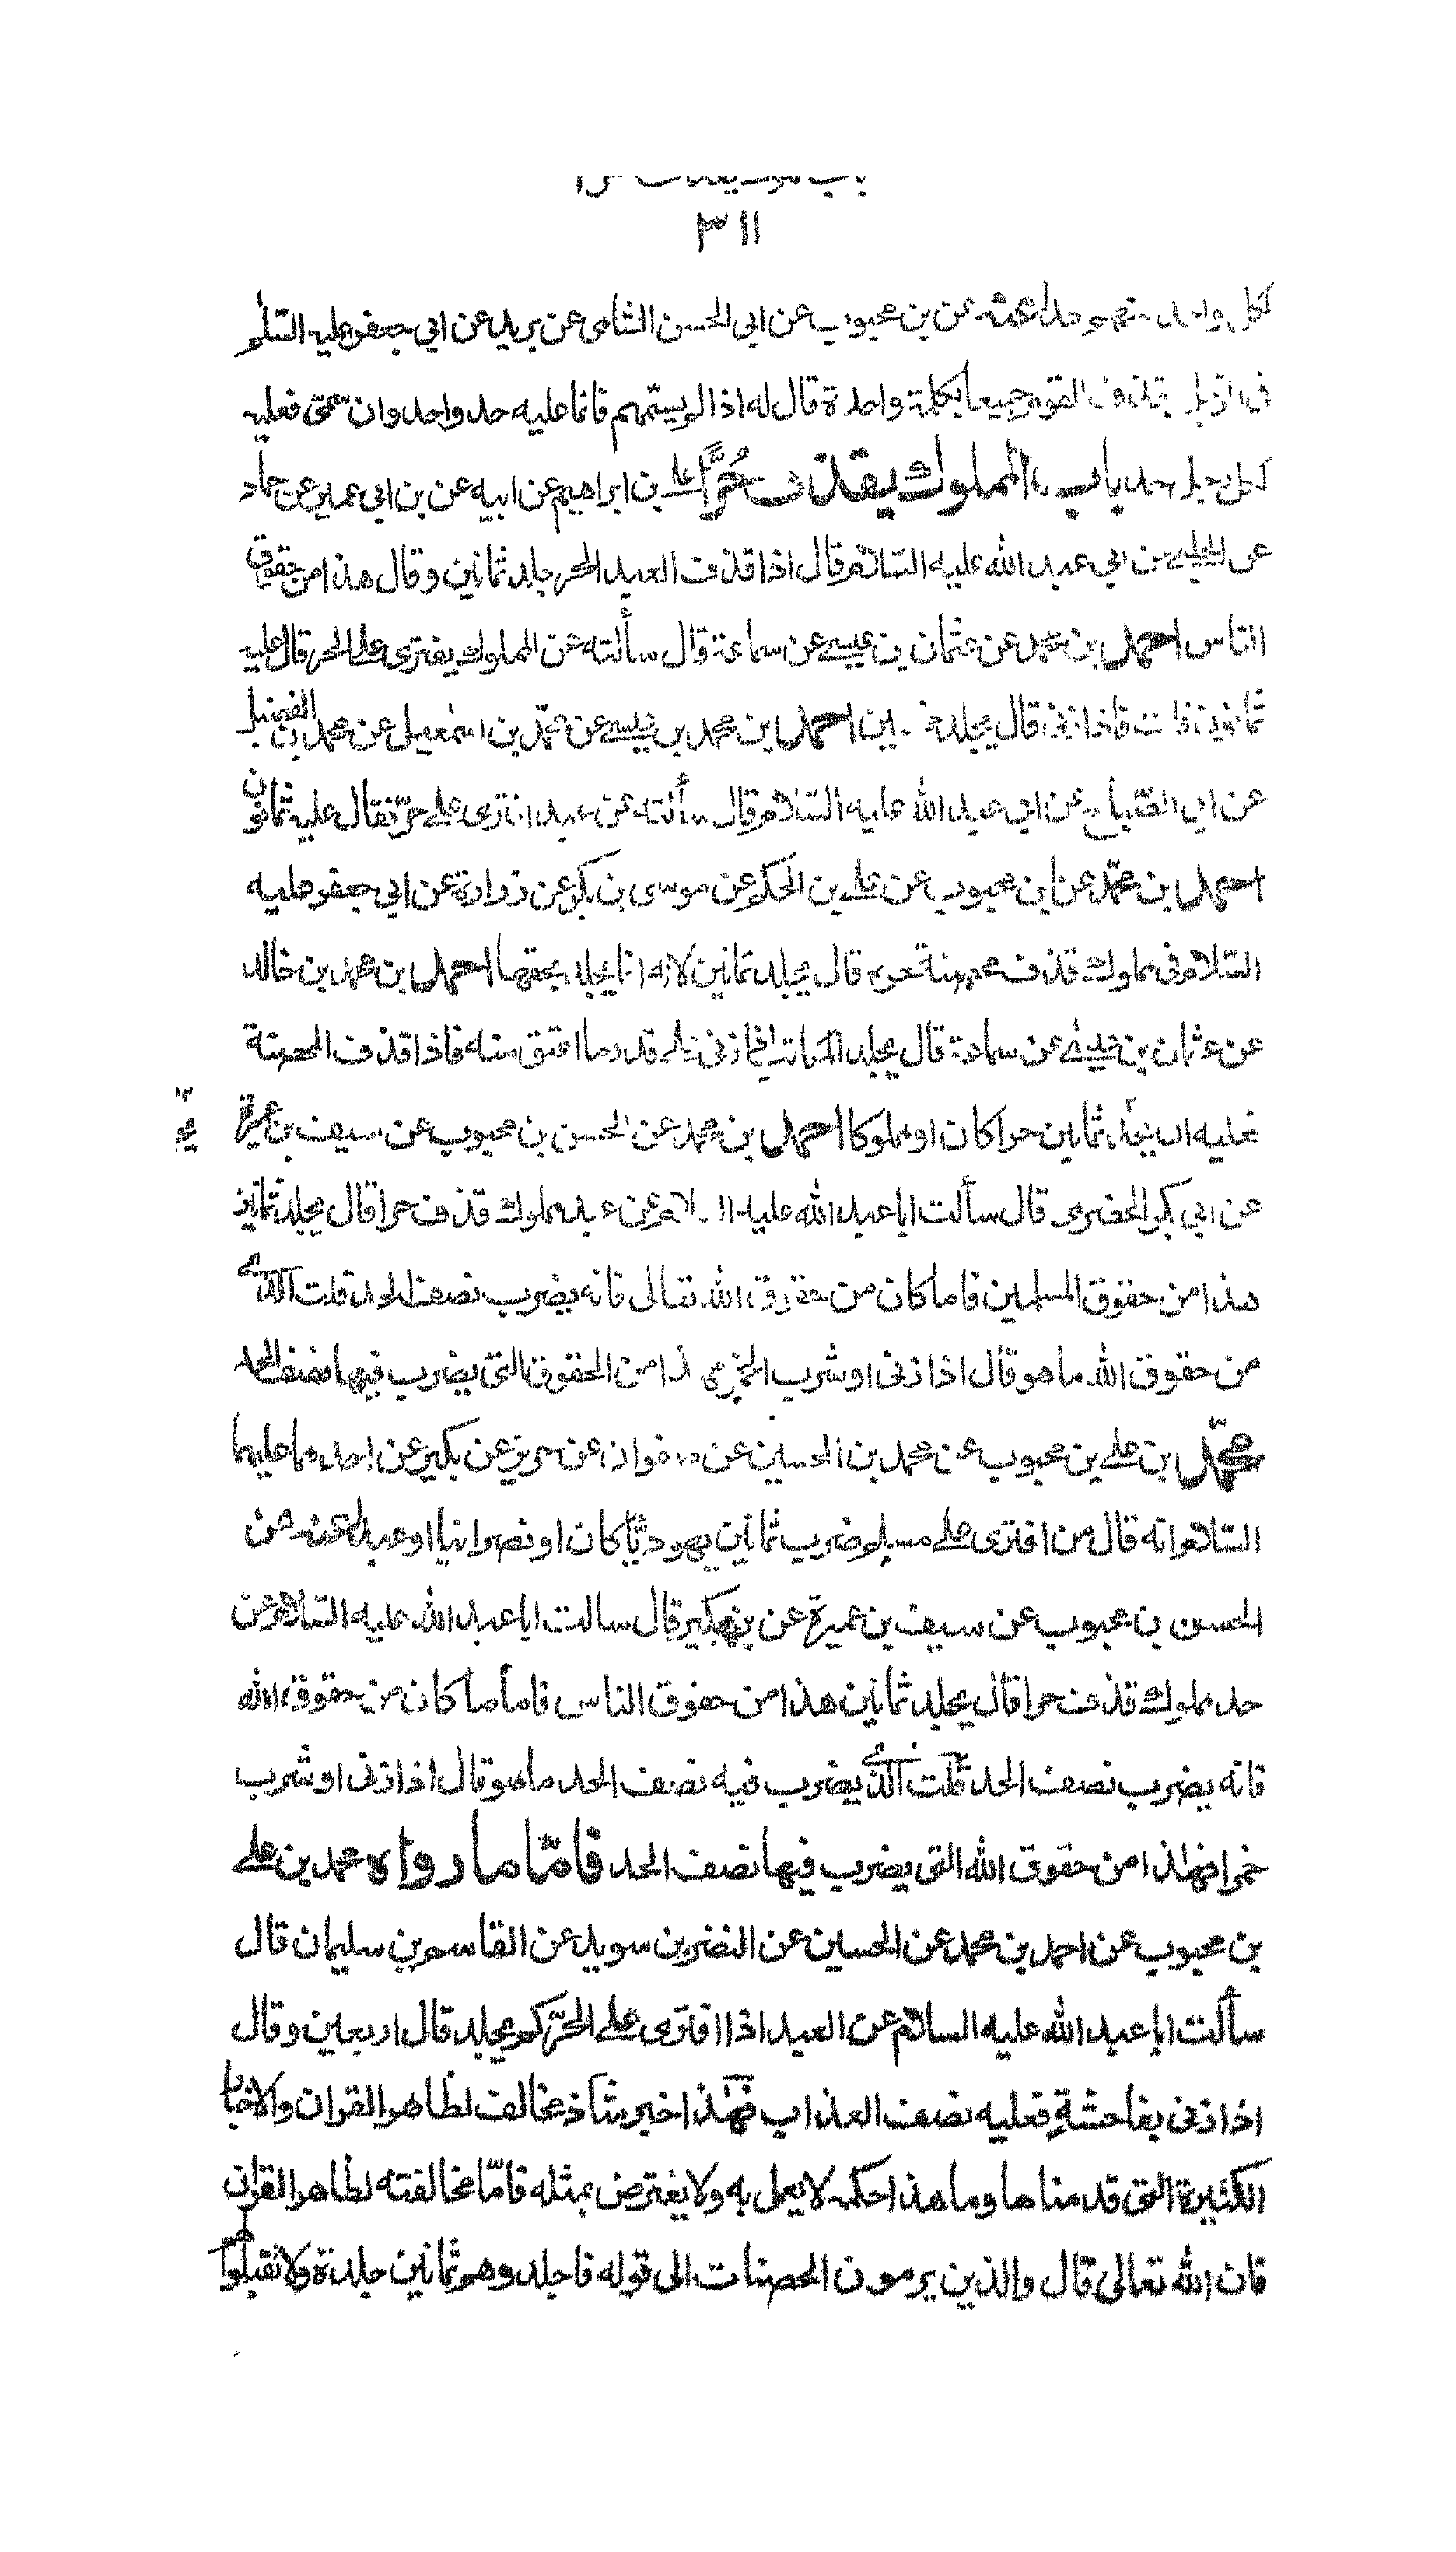 باب المملوك يقذف حرا
٣١١
لكل واحد منهم حدا عنه عن بن محبوب عن ابى الحسن الشامى عن بريد عن ابي جعفر عليه السلم
فى الرجل يقذف القوم جميعا بكلمة واحدة قال له اذا لم يسمهم فانما عليه حد واحد وان سمى فعليه
لكل رجل حد باب المملوك يقذف حُرًّا على بن ابراهيم عن ابيه عن بن ابى عمير عن حماد
عن الحلبي عن ابي عبد الله عليه السّلام قال اذا قذف العبد الحر جلد ثمانين وقال هذا من حقوق
الناس احمد بن محمد عن عثمان بن عيسى عن سماعة قال سألته عن المملوك يفترى على الحر قال عليه
ثمانون قلت فاذا زنى قال يجلد خمسين احمد بن محمد بن عيسى عن محمّد بن اسمعيل عن محمد بن الفضيل
عن ابى الصّباح عن ابى عبد الله عليه السّلام قال سألته عن عبد افترى على حرّ فقال عليه ثمانون
احمد بن محمّد عن ابن محبوب عن على بن الحكم عن موسى بن بكر عن زرارة عن ابي جعفر عليه
السّلام فى مملوك قذف محصنة حرة قال يجلد ثمانين لانه انما يجلد بحقها احمد بن محمد بن خالد
عن عثمان بن عيسى عن سماعة قال يجلد المكاتب اذا زنى على قدر ما اعتق منه فاذا قذف المحصنة
فعليه ان يجلد ثمانين حرا كان او مملوكا احمد بن محمد عن الحسن بن محبوب عن سيف بن عميرة
عن ابي بكر الحضرمى قال سألت ابا عبد الله عليه السلام عن عبد مملوك قذف حرا قال يجلد ثمانين
هذا من حقوق المسلمين فاما ما كان من حقوق الله تعالى فانه يضرب نصف الحد قلت الذى
من حقوق الله ما هو قال اذا زنى او شرب الخمر فهذا من الحقوق التى يضرب فيها نصف الحد
محمّد بن على بن محبوب عن محمد بن الحسين عن صفوان عن حريز عن بكير عن احدهما عليهما
السّلام انه قال من افترى على مسلم ضرب ثمانين يهوديّا كان او نصرانيا او عبدا عنه عن
الحسن بن محبوب عن سيف بن عميرة عن بن بكير قال سالت ابا عبد الله عليه السّلام عن
حد مملوك قذف حرا قال يجلد ثمانين هذا من حقوق الناس فاما ما كان من حقوق الله
فانه يضرب نصف الحد قلت الذى يضرب فيه نصف الحد ما هو قال اذا زنى او شرب
خمرا فهٰذا من حقوق الله التى يضرب فيها نصف الحد فامّا ما رواه محمد بن على
بن محبوب عن احمد بن محمد عن الحسين عن النضر بن سويد عن القاسم بن سليمان قال
سألت ابا عبد الله عليه السلام عن العبد اذا افترى على الحرّ كم يجلد قال اربعين وقال
اذا زنى بفاحشةٍ فعليه نصف العذاب فهٰذا خبر شاذ مخالف لظاهر القران والاخبار
الكثيرة التى قدمناها وما هذا حكمه لا يعمل به ولا يعترض بمثله فامّا مخالفته لظاهر القران
فان الله تعالى قال والذين يرمون المحصنات الى قوله فاجلدوهم ثمانين جلدة ولا تقبلوا